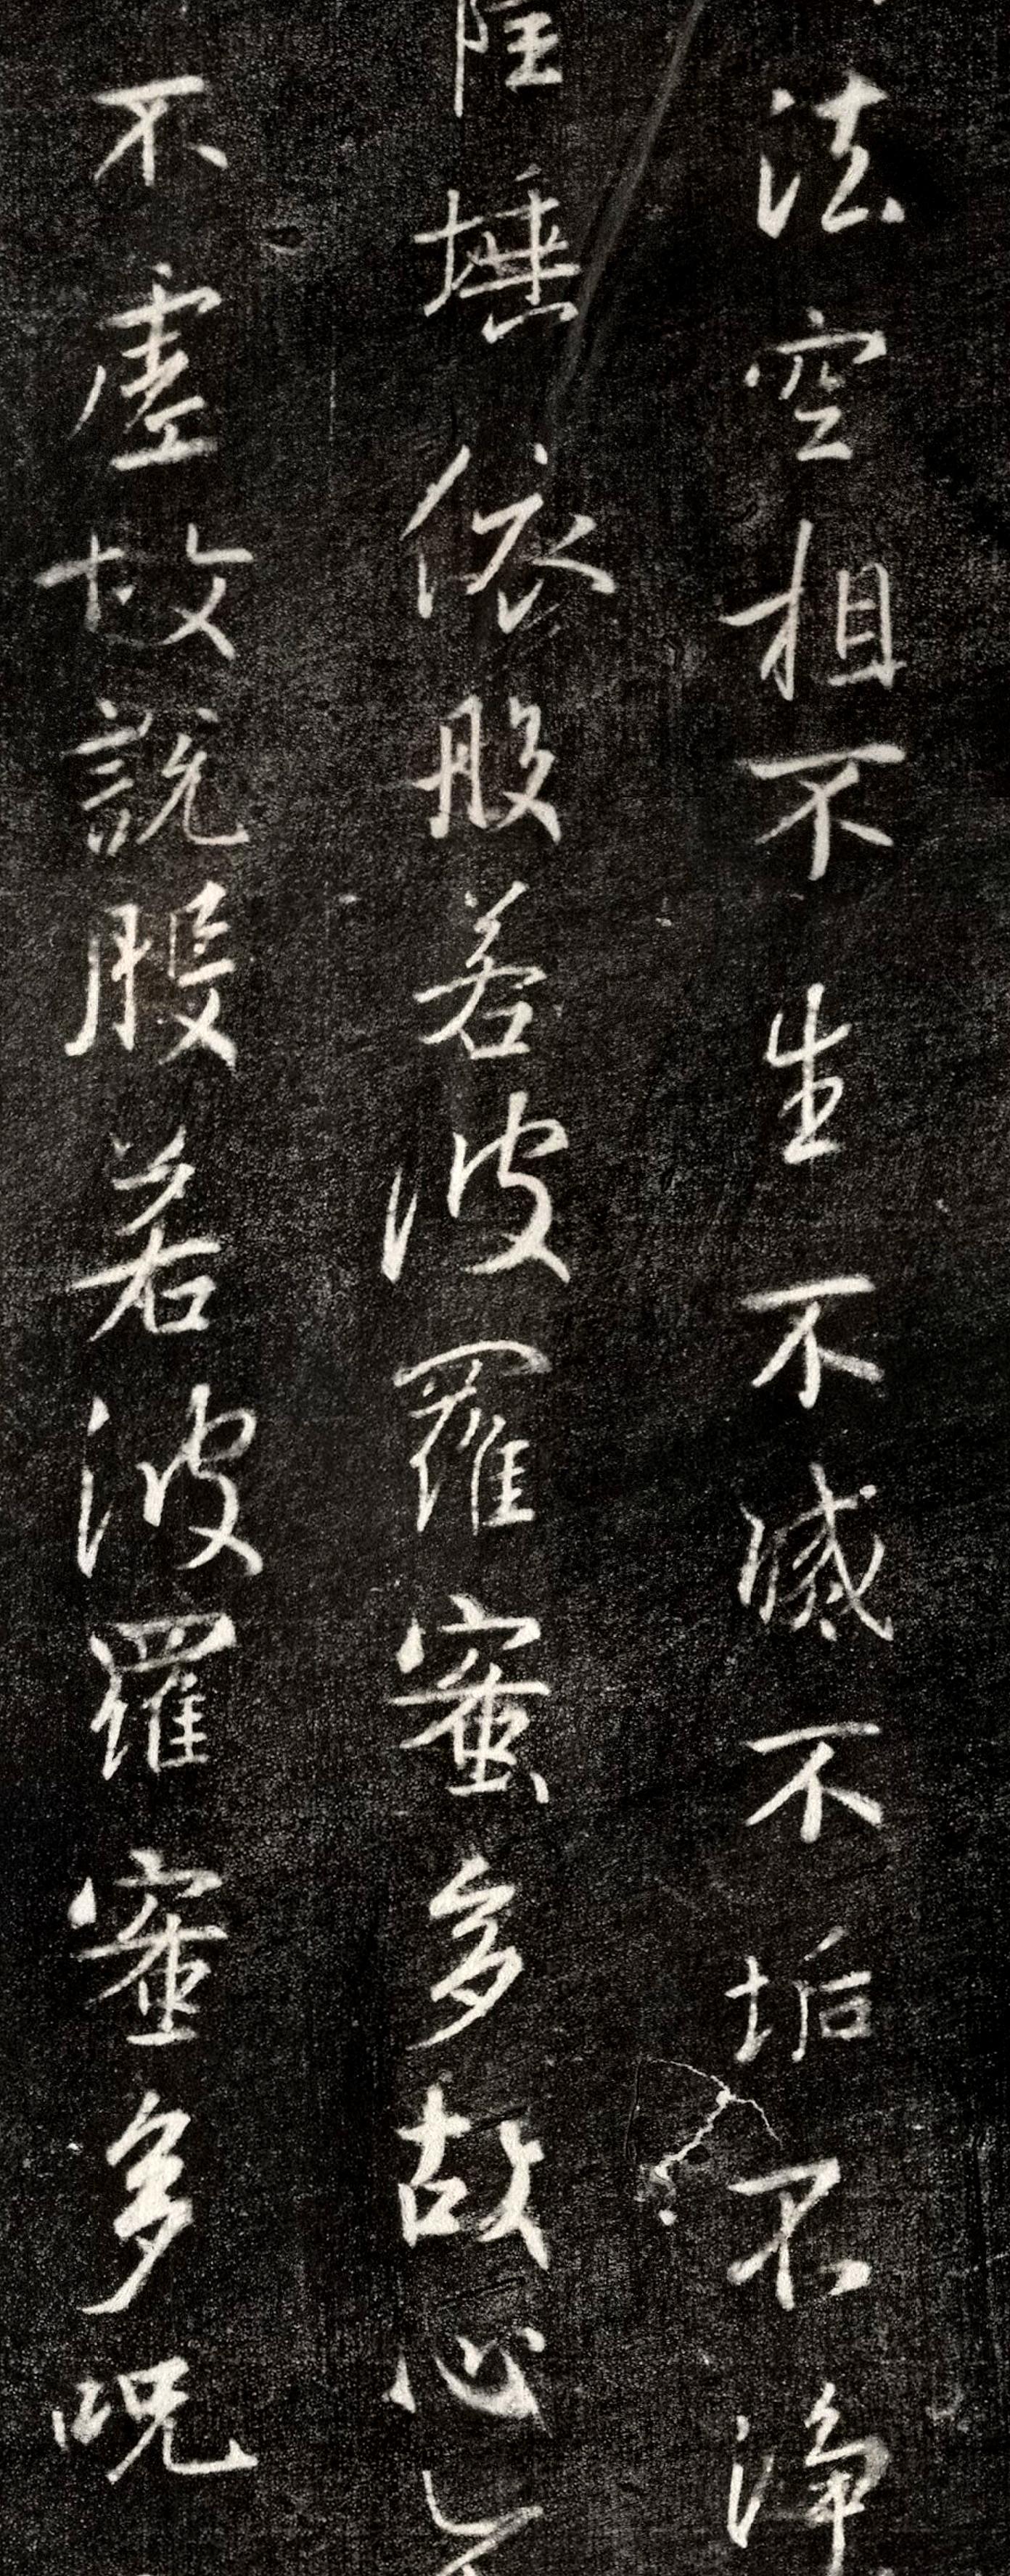 法空相不生不滅不垢不淨
陲埵依般若波羅蜜多故心
不虛故說般若波羅蜜多呪